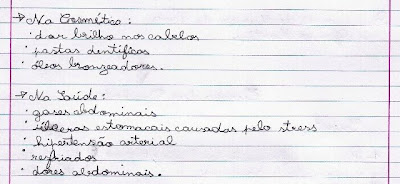 → Na Cosmético:
· dar brilho nos cabelos
· pastas dentíficas
· óleos bronzeadores.
→ Na Saúde:
· gases abdominais
· úlceras estomacais causadas pelo stress
· hipertensão arterial
· resfriados
· dores abdominais.